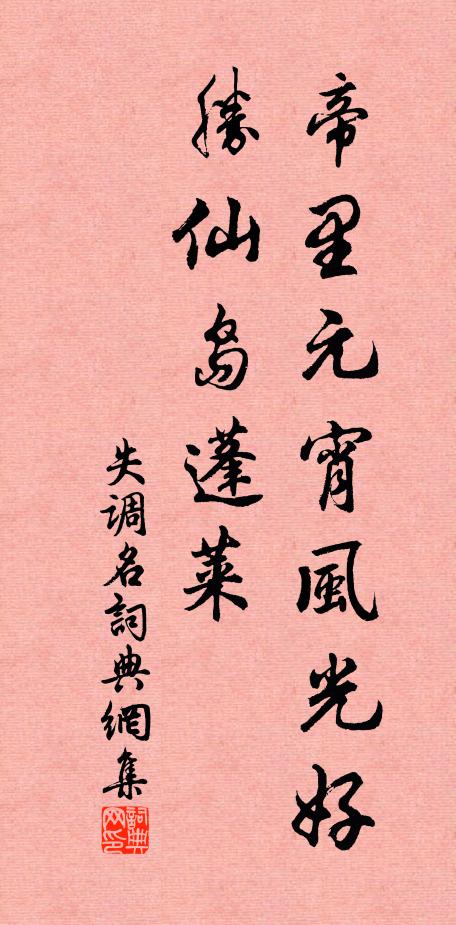 帝里元宵風光好
勝仙島蓬萊
失調名詞典網集
詞典网印